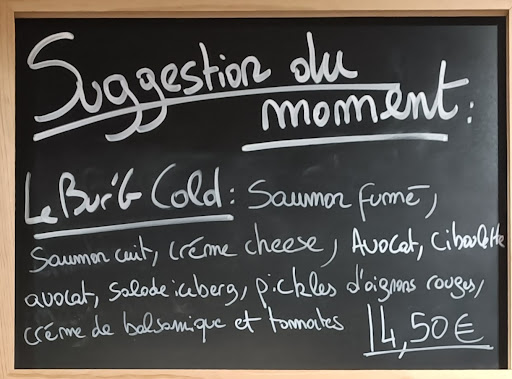 Suggestion du
moment:
Le Bur'G Cold: Saumon fumé,
Saumon cuit, crème cheese, Avocat, ciboulette
avocat, Salade iceberg, pickles d'oignons rouges,
crème de balsamique et tomates 14,50€